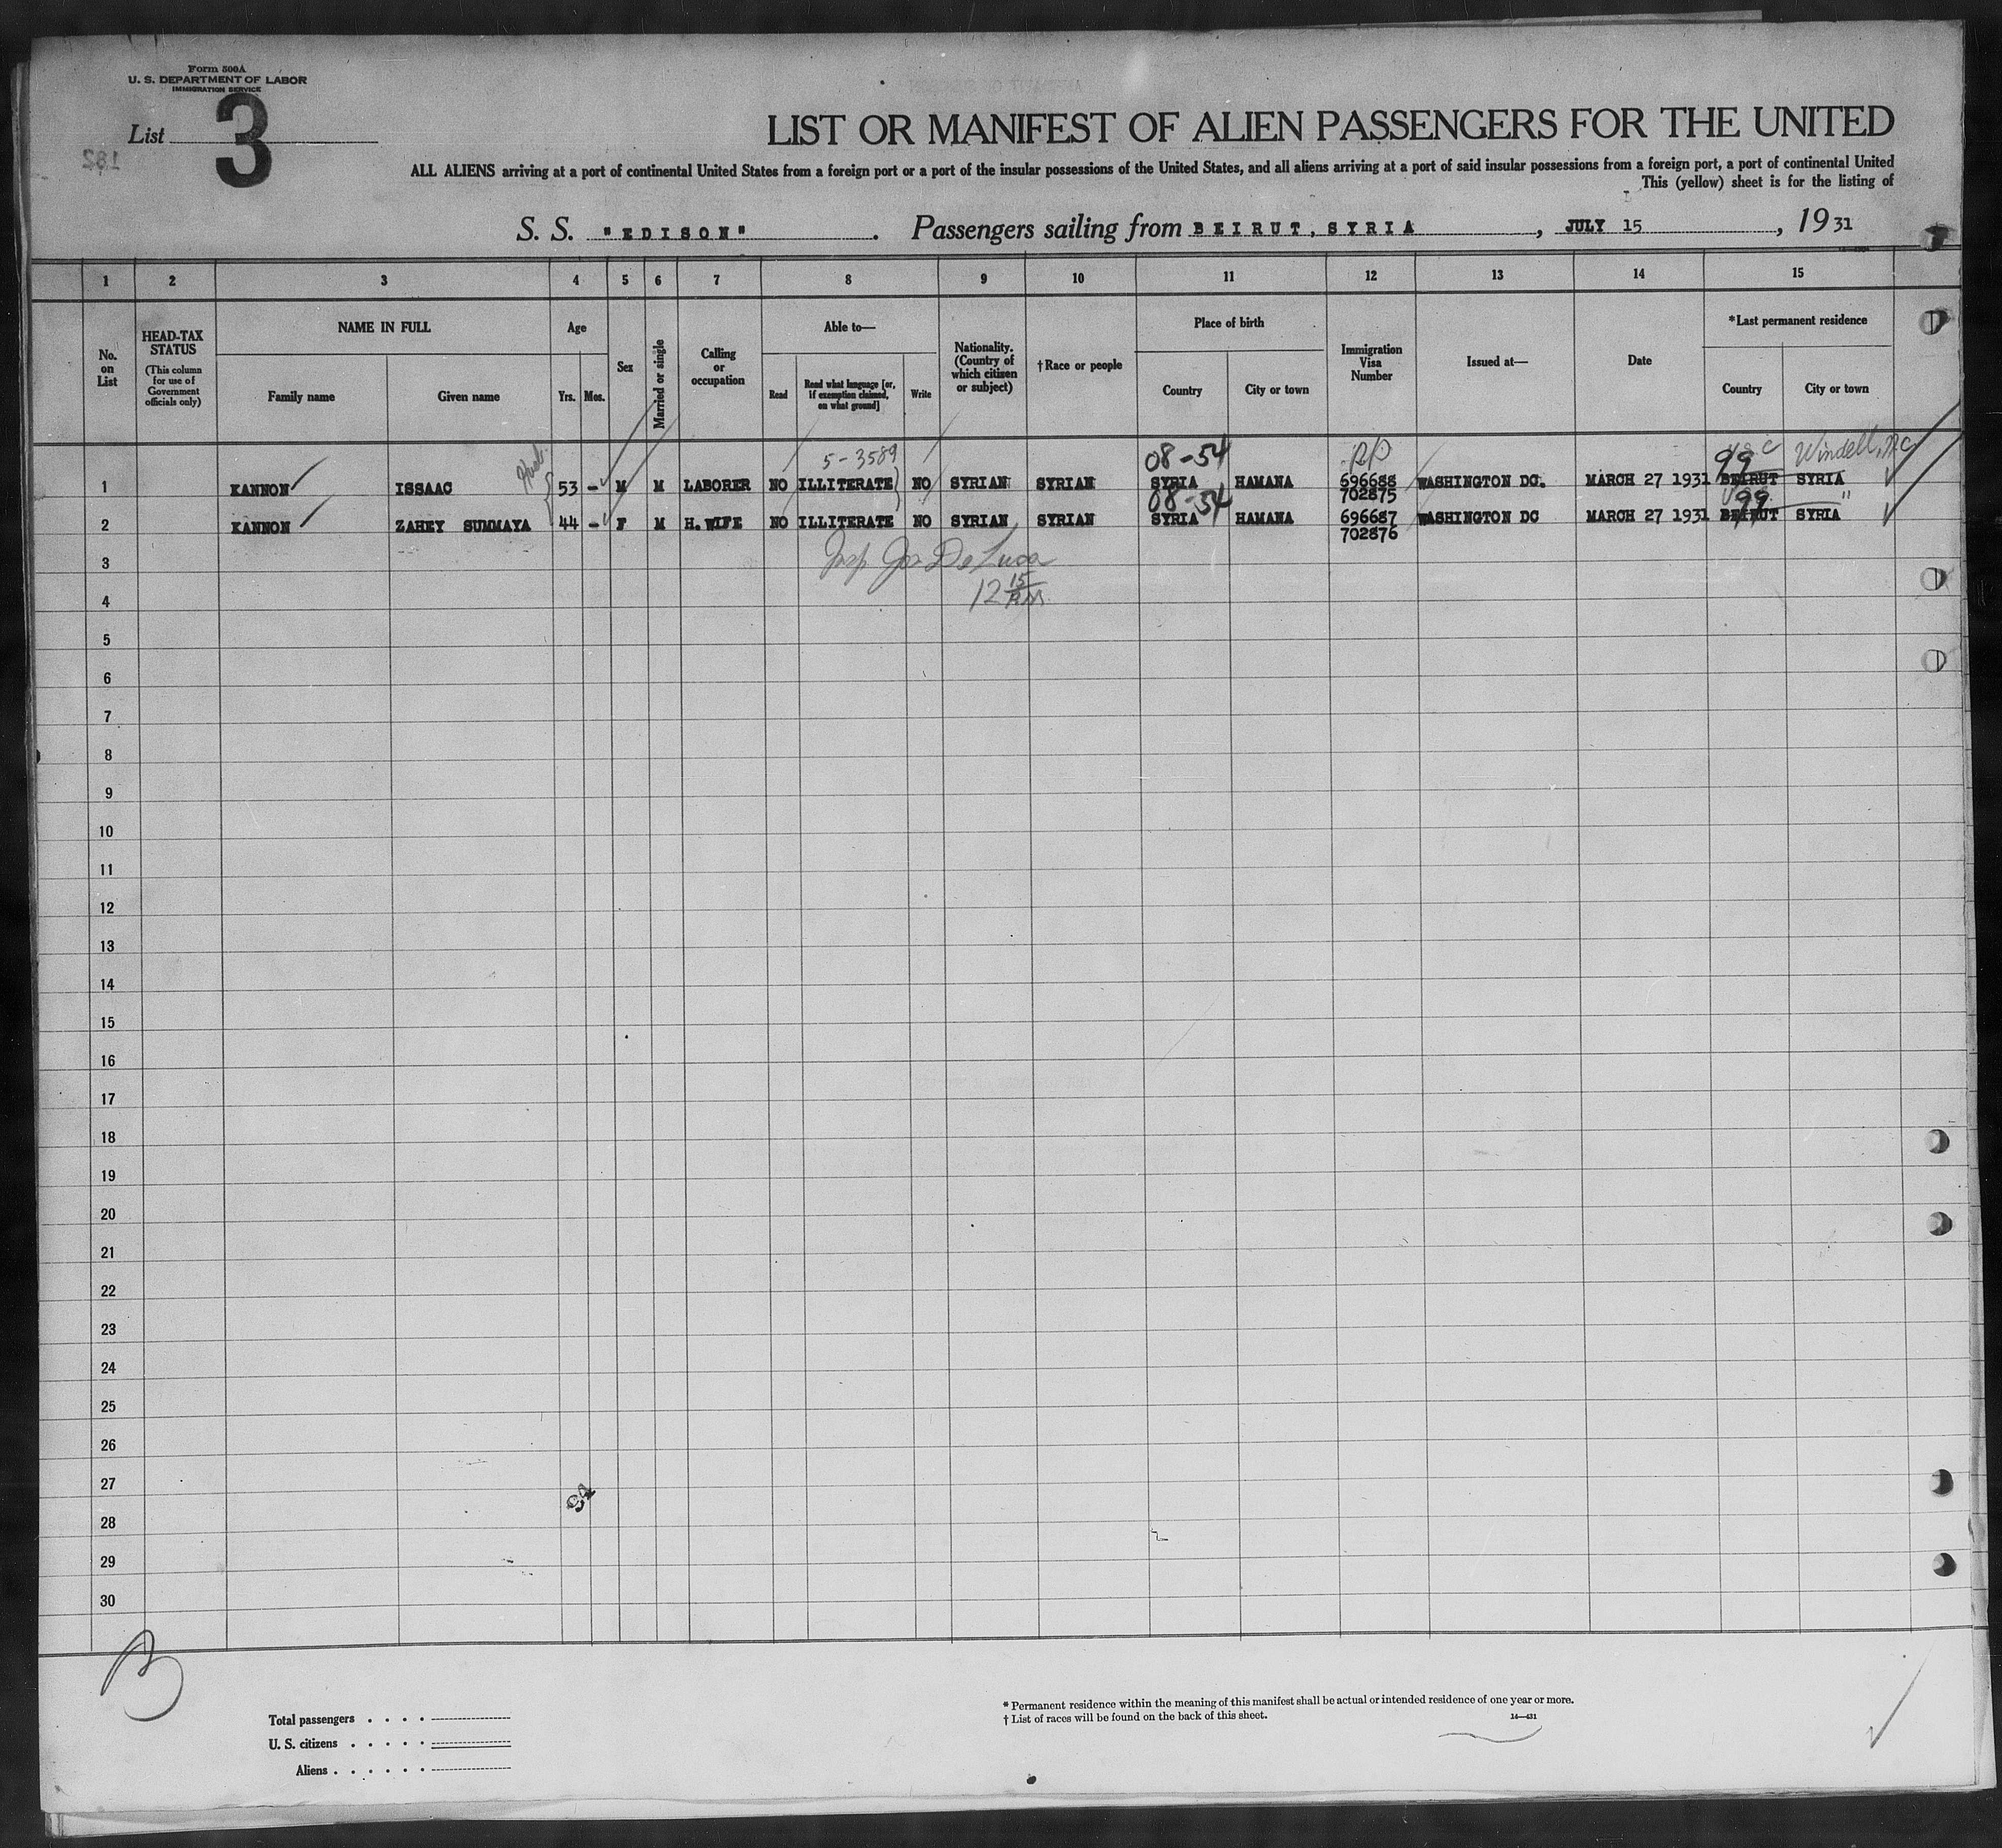 Form 500A
U. S. DEPARTMENT OF LABOR
IMMIGRATION SERVICE
List 3
182
LIST OR MANIFEST OF ALIEN PASSENGERS FOR THE UNITED
ALL ALIENS arriving at a port of continental United States from a foreign port or a port of the insular possessions of the United States, and all aliens arriving at a port of said insular possessions from a foreign port, a port of continental United
This (yellow) sheet is for the listing of
S. S. "EDISON". Passengers sailing from BEIRUT, SYRIA, JULY 15, 1931
1 2 3 4 5 6 7 8 9 10 11 12 13 14 15
No. on List
HEAD-TAX STATUS
(This column for use of Government officials only)
NAME IN FULL
Family name
Given name
Age
Yrs.
Mos.
Sex
Married or single
Calling or occupation
Able to—
Read
Read what language [or, if exemption claimed, on what ground]
Write
Nationality. (Country of which citizen or subject)
†Race or people
Place of birth
Country
City or town
Immigration Visa Number
Issued at—
Date
*Last permanent residence
Country
City or town
5-3589 08-54 RP 99 Windell, NC
1 KANNON ISSAAC 53 - M M LABORER NO ILLITERATE NO SYRIAN SYRIAN SYRIA HAMANA 696688 WASHINGTON DC. MARCH 27 1931 BEIRUT SYRIA
702875
08-54 99 "
2 KANNON ZAHEY SUMMAYA 44 - F M H. WIFE NO ILLITERATE NO SYRIAN SYRIAN SYRIA HAMANA 696687 WASHINGTON DC MARCH 27 1931 BEIRUT SYRIA
702876
3 Insp Jos De Luca
4 12 15
5
6
7
8
9
10
11
12
13
14
15
16
17
18
19
20
21
22
23
24
25
26
27
28
29
30
B
Total passengers . . . .
U. S. citizens . . . . .
Aliens . . . . . .
* Permanent residence within the meaning of this manifest shall be actual or intended residence of one year or more.
† List of races will be found on the back of this sheet.
14—431